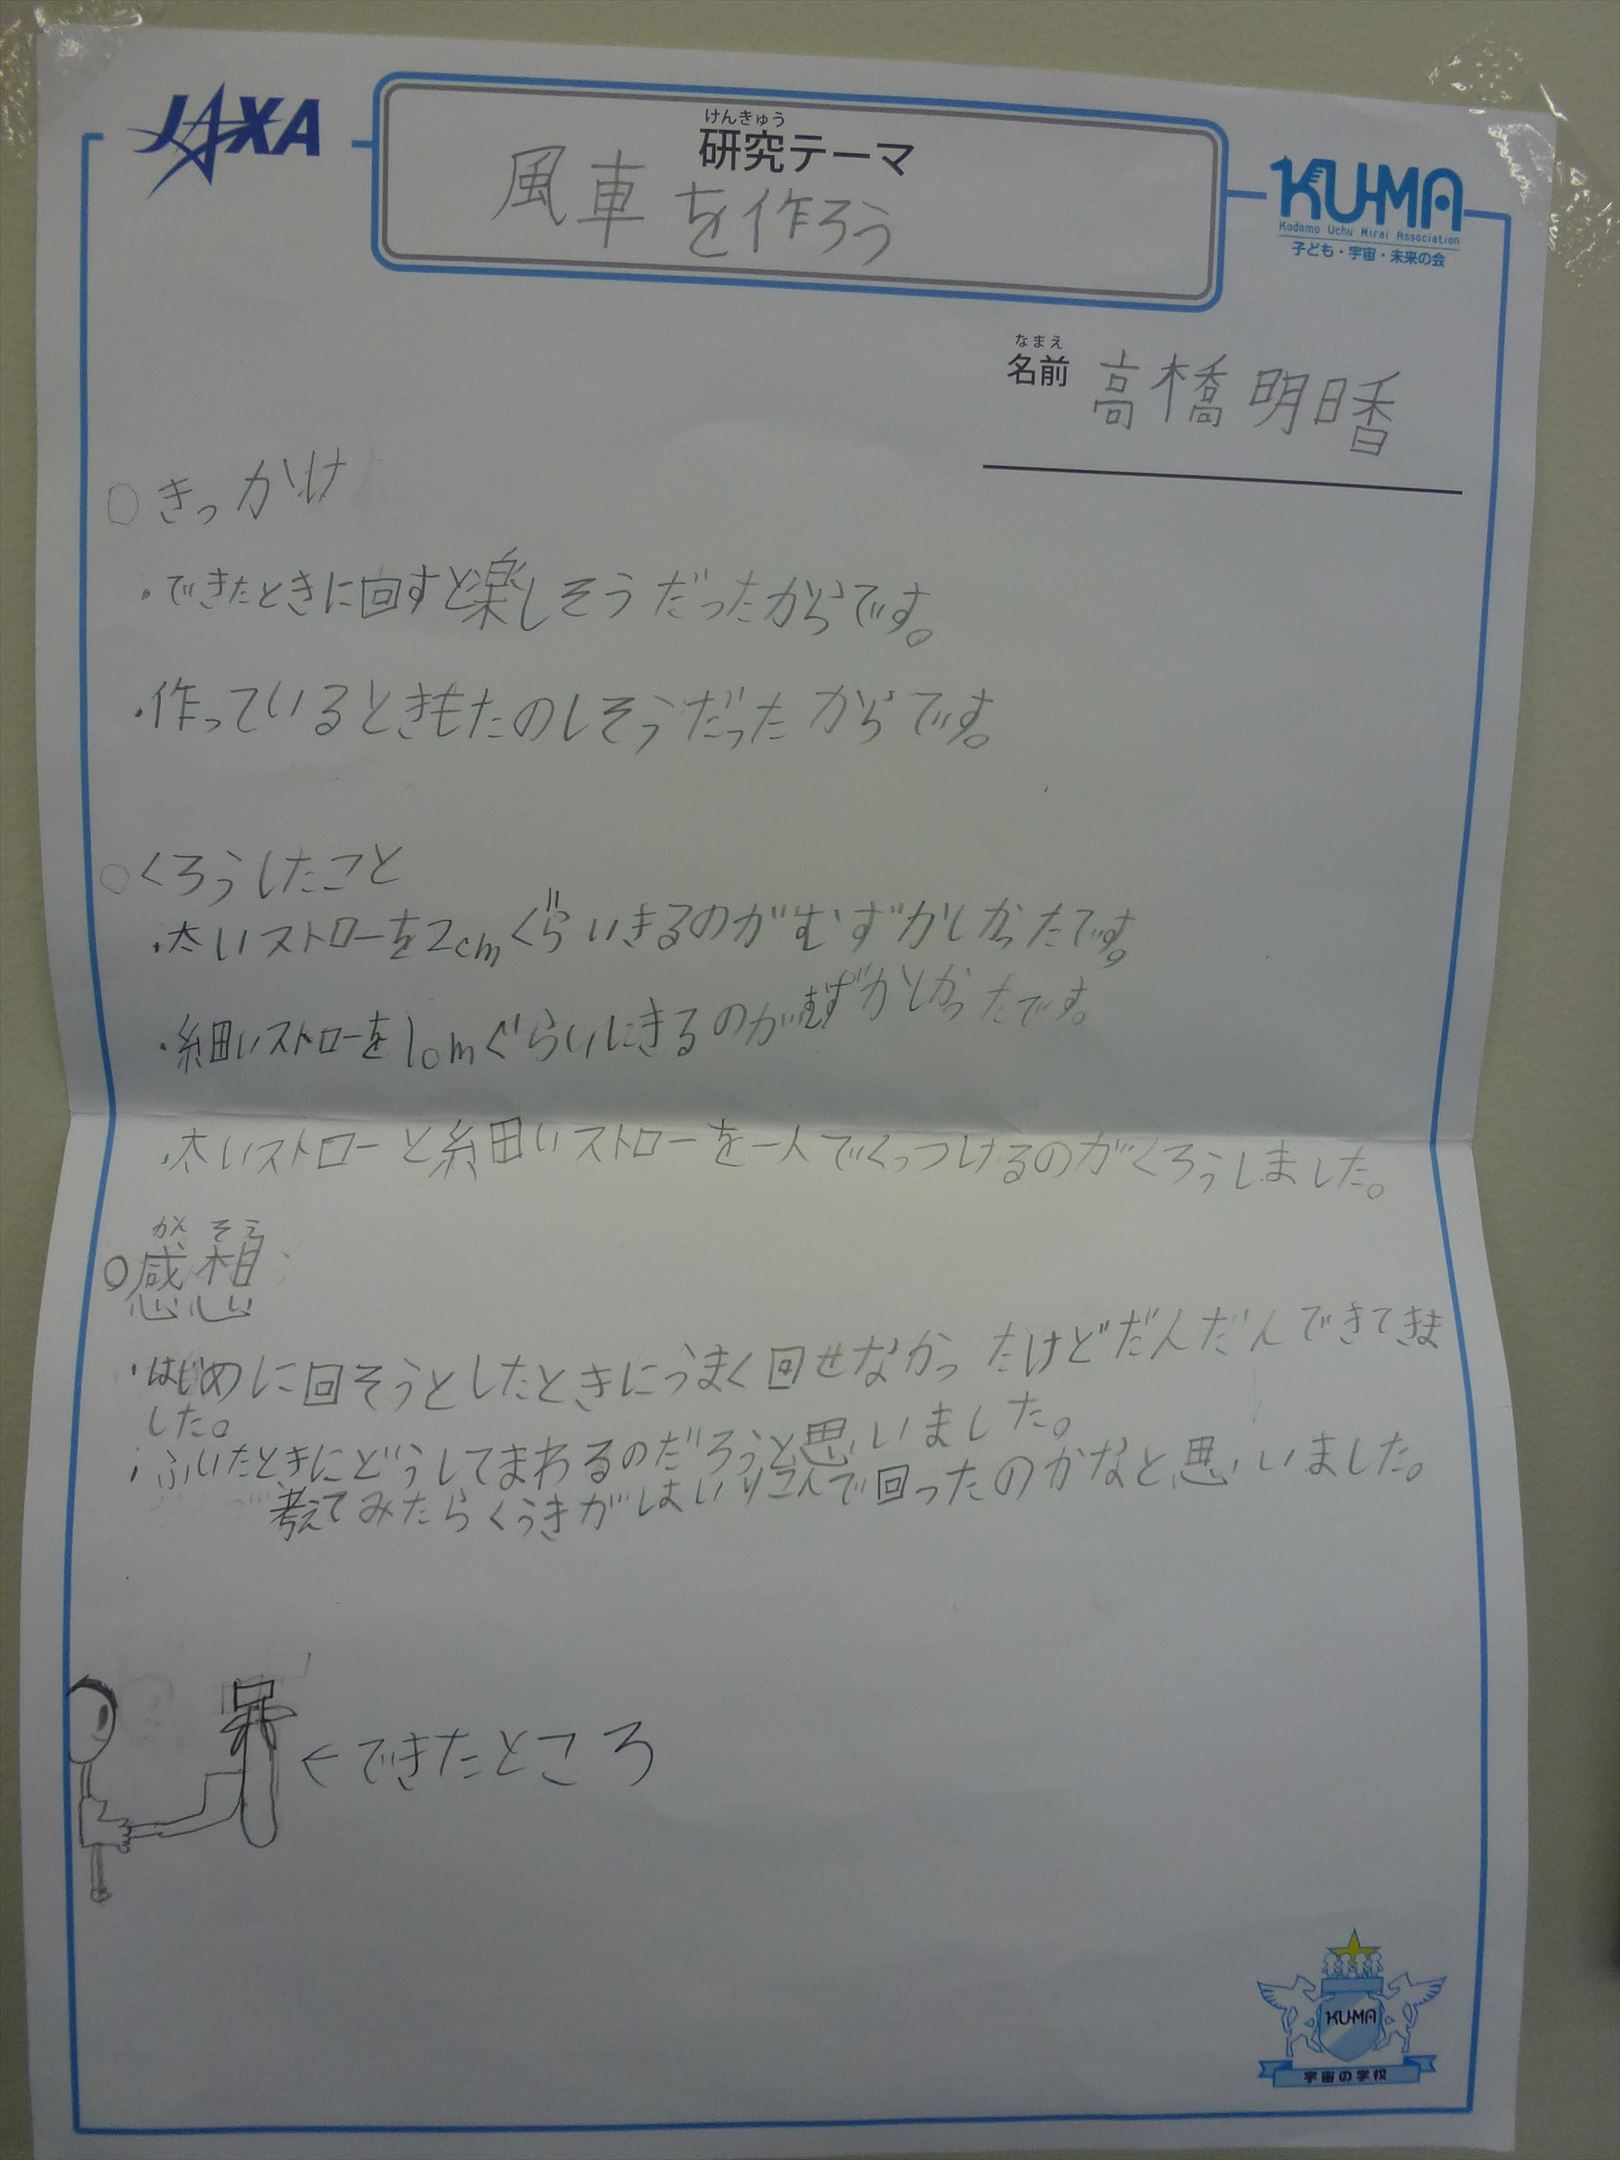 JAXA
けんきゅう
研究テーマ
風車を作ろう
KU-MA
Kodomo Uchu Mirai Association
子ども・宇宙・未来の会
なまえ
名前 高橋明日香
○きっかけ
・できたときに回すと楽しそうだったからです。
・作っているときもたのしそうだったからです。
○くろうしたこと
・太いストローを2cmぐらいきるのがむずかしかったです。
・細いストローを1cmぐらいにきるのがむずかしかったです。
・太いストローと細いストローを一人でくっつけるのがくろうしました。
かんそう
○感想
・はじめに回そうとしたときにうまく回せなかったけどだんだんできてきま
した。
・ふいたときにどうしてまわるのだろうと思いました。
考えてみたらくうきがはいりこんで回ったのかなと思いました。
←できたところ
KU-MA
宇宙の学校